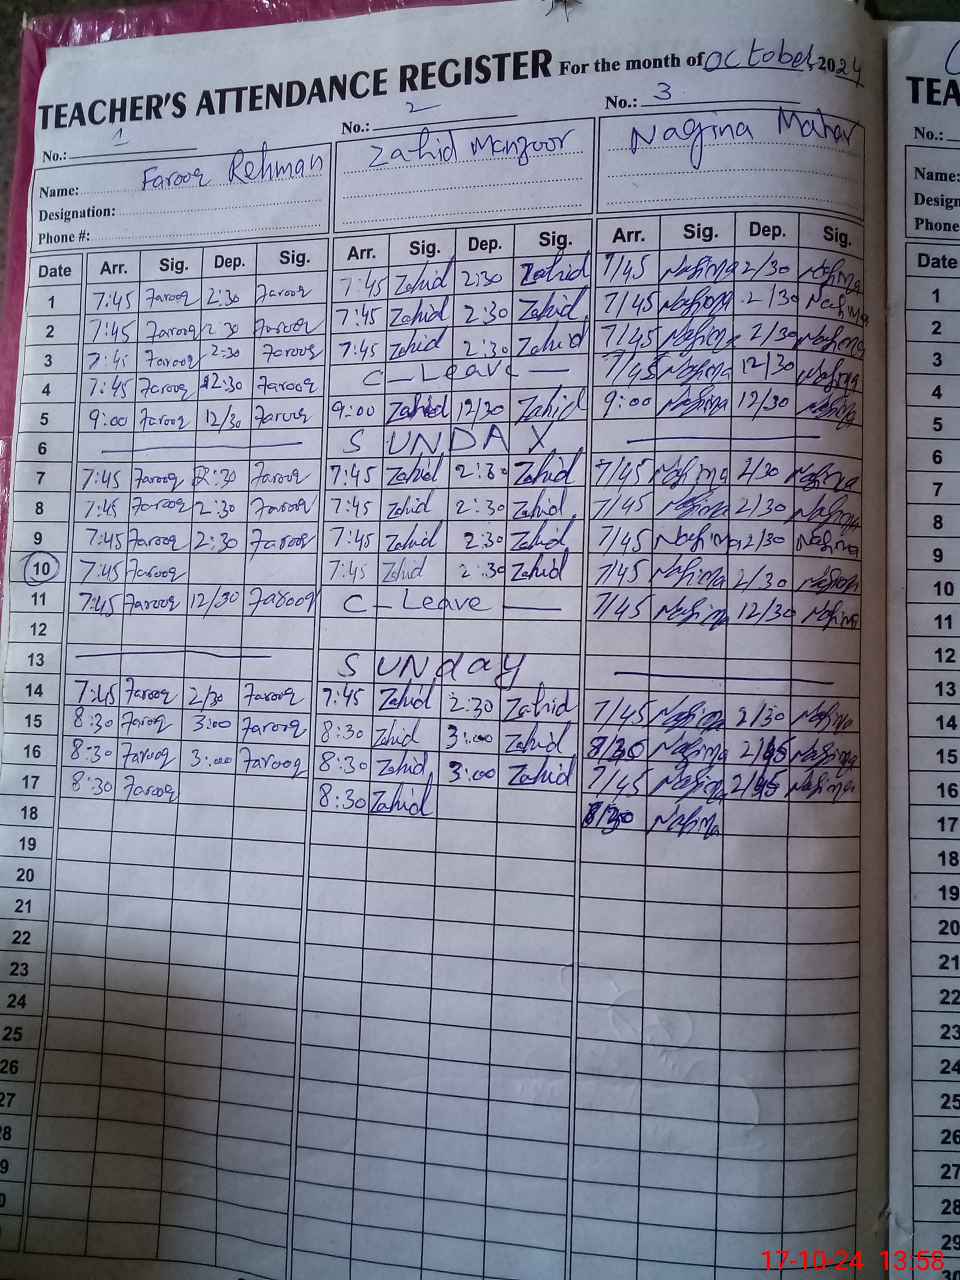 TEACHER'S ATTENDANCE REGISTER For the month of October, 2024
No.: 1 No.: 2 No.: 3
Name: Farooq Rehman Zahid Manzoor Nagina Mahar
Designation:
Phone #:
Date Arr. Sig. Dep. Sig. Arr. Sig. Dep. Sig. Arr. Sig. Dep. Sig.
1 7:45 Farooq 2:30 Farooq 7:45 Zahid 2:30 Zahid 7/45 Nagina 2/30 Nagina
2 7:45 Farooq 2:30 Farooq 7:45 Zahid 2:30 Zahid 7/45 Nagina 2/30 Nagina
3 7:45 Farooq 2:30 Farooq 7:45 Zahid 2:30 Zahid 7/45 Nagina 2/30 Nagina
4 7:45 Farooq 12:30 Farooq C - Leave — 7/45 Nagina 12/30 Nagina
5 9:00 Farooq 12/30 Farooq 9:00 Zahid 12/30 Zahid 9:00 Nagina 12/30 Nagina
6 — SUNDAY —
7 7:45 Farooq 2:30 Farooq 7:45 Zahid 2:30 Zahid 7/45 Nagina 2/30 Nagina
8 7:45 Farooq 2:30 Farooq 7:45 Zahid 2:30 Zahid 7/45 Nagina 2/30 Nagina
9 7:45 Farooq 2:30 Farooq 7:45 Zahid 2:30 Zahid 7/45 Nagina 2/30 Nagina
10 7:45 Farooq 7:45 Zahid 2:30 Zahid 7/45 Nagina 2/30 Nagina
11 7:45 Farooq 12/30 Farooq C - Leave — 7/45 Nagina 12/30 Nagina
12
13 — SUNday —
14 7:45 Farooq 2/30 Farooq 7:45 Zahid 2:30 Zahid 7/45 Nagina 2/30 Nagina
15 8:30 Farooq 3:00 Farooq 8:30 Zahid 3:00 Zahid 8/30 Nagina 2/45 Nagina
16 8:30 Farooq 3:00 Farooq 8:30 Zahid 3:00 Zahid 7/45 Nagina 2/45 Nagina
17 8:30 Farooq 8:30 Zahid 8/30 Nagina
18
19
20
21
22
23
24
25
26
27
28
9
0
TEA
No.:
Name:
Design
Phone
Date
1
2
3
4
5
6
7
8
9
10
11
12
13
14
15
16
17
18
19
20
21
22
23
24
25
26
27
28
29
17-10-24 13:58